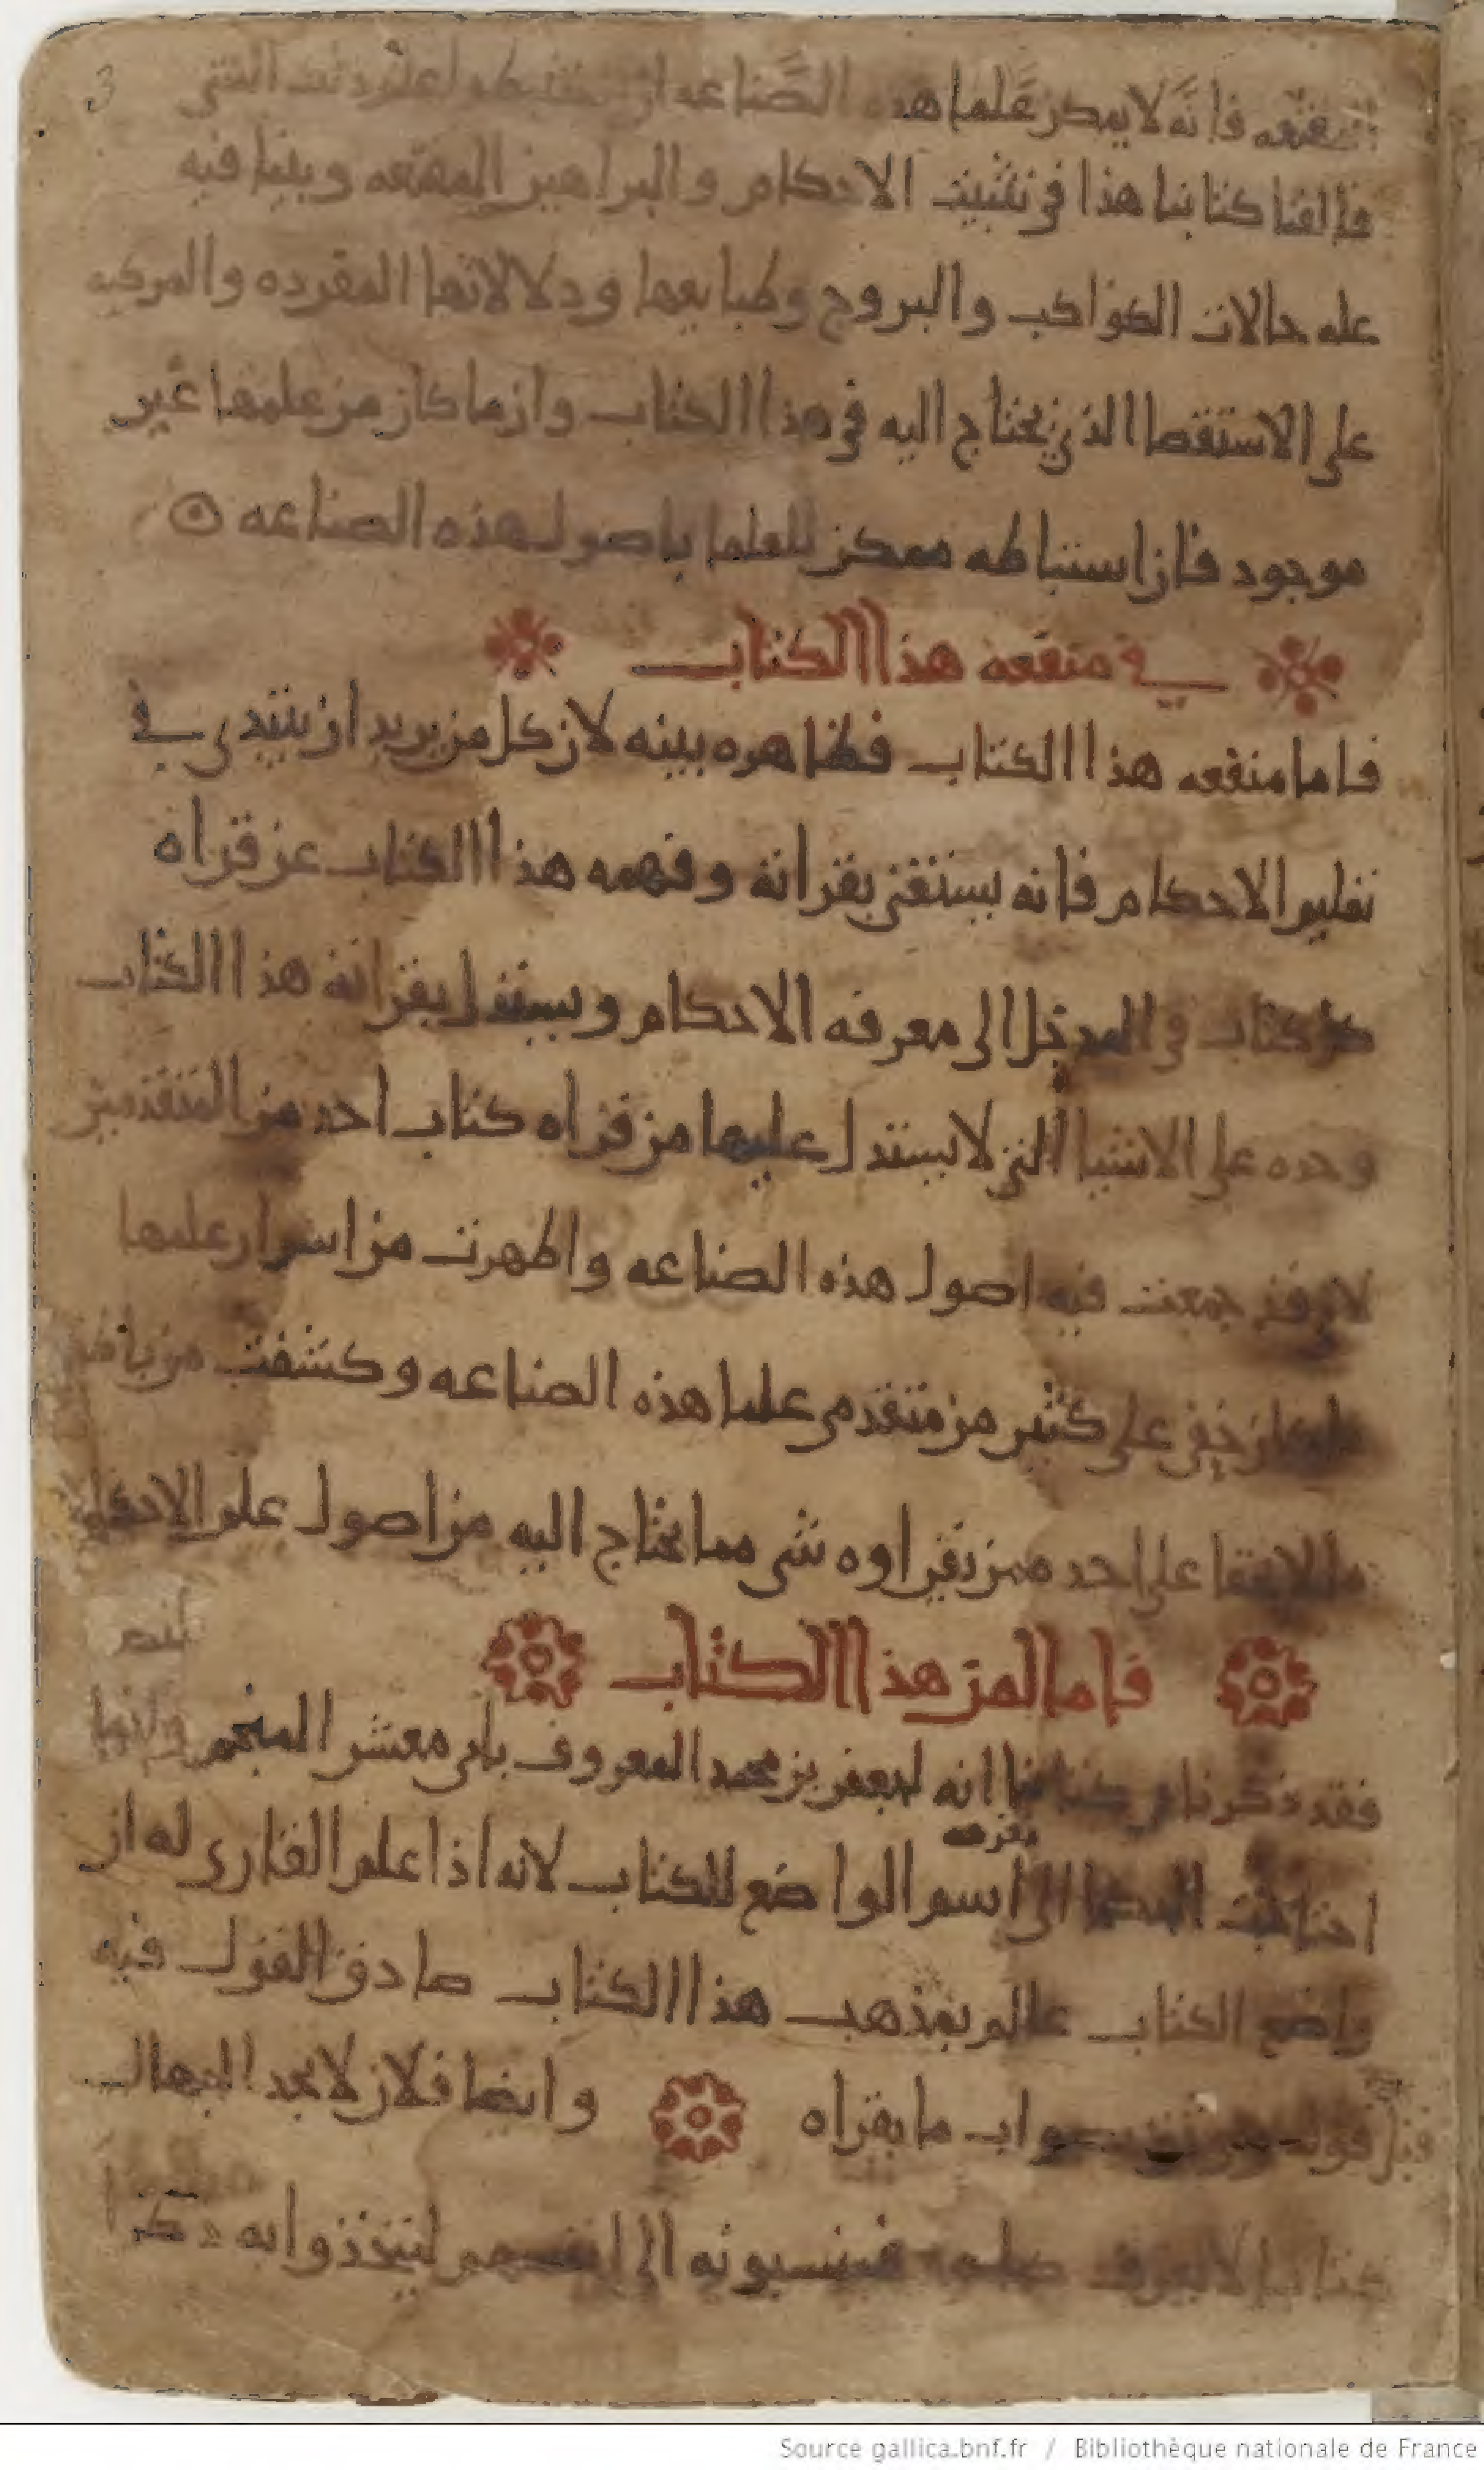 3
فانه لا يمكن علما هذه الصناعه
فالفنا كتابنا هذا في تثبيت الاحكام والبراهين المقنعه وبينا فيه
عله حالات الكواكب والبروج وطبايعها ودلالاتها المفرده والمركبه
على الاستقصا الذي يحتاج اليه في هذا الكتاب وان ما كان من علمها غير
موجود فان استنباطه ممكن للعلما باصول هذه الصناعه
في منفعه هذا الكتاب
فاما منفعه هذا الكتاب فظاهره بينه لان كل من يريد ان يبتدي في
تعليم الاحكام فانه يستغني بقراته وفهمه هذا الكتاب عن قراه
كل كتاب في المدخل الى معرفه الاحكام ويستدل بقراته هذا الكتاب
وحده على الاشيا التي لا يستدل عليها من قراه كتاب احد من المتقدمين
جمعت فيه اصول هذه الصناعه واظهرت من اسرار علمها
ما كان خفي على كثير من متقدمي علما هذه الصناعه وكشفت من
على احد ممن يقراوه شي مما يحتاج اليه من اصول علم الاحكام
فاما لمن هذا الكتاب
فقد ذكرنا في كتابنا انه لجعفر بن محمد المعروف بابي معشر المنجم وانما
معرفه
احتاجت الحكما الى اسم الواضع للكتاب لانه اذا علم القاري له ان
واضع الكتاب عالم بمذهب هذا الكتاب صادق القول فيه
قبل قوله بصواب ما يقراه وايضا فلان لا يجد الجهال
كتابا لا يعرف صاحبه فينسبونه الى انفسهم ليتخذوا به ذكرا
Source gallica.bnf.fr / Bibliothèque nationale de France